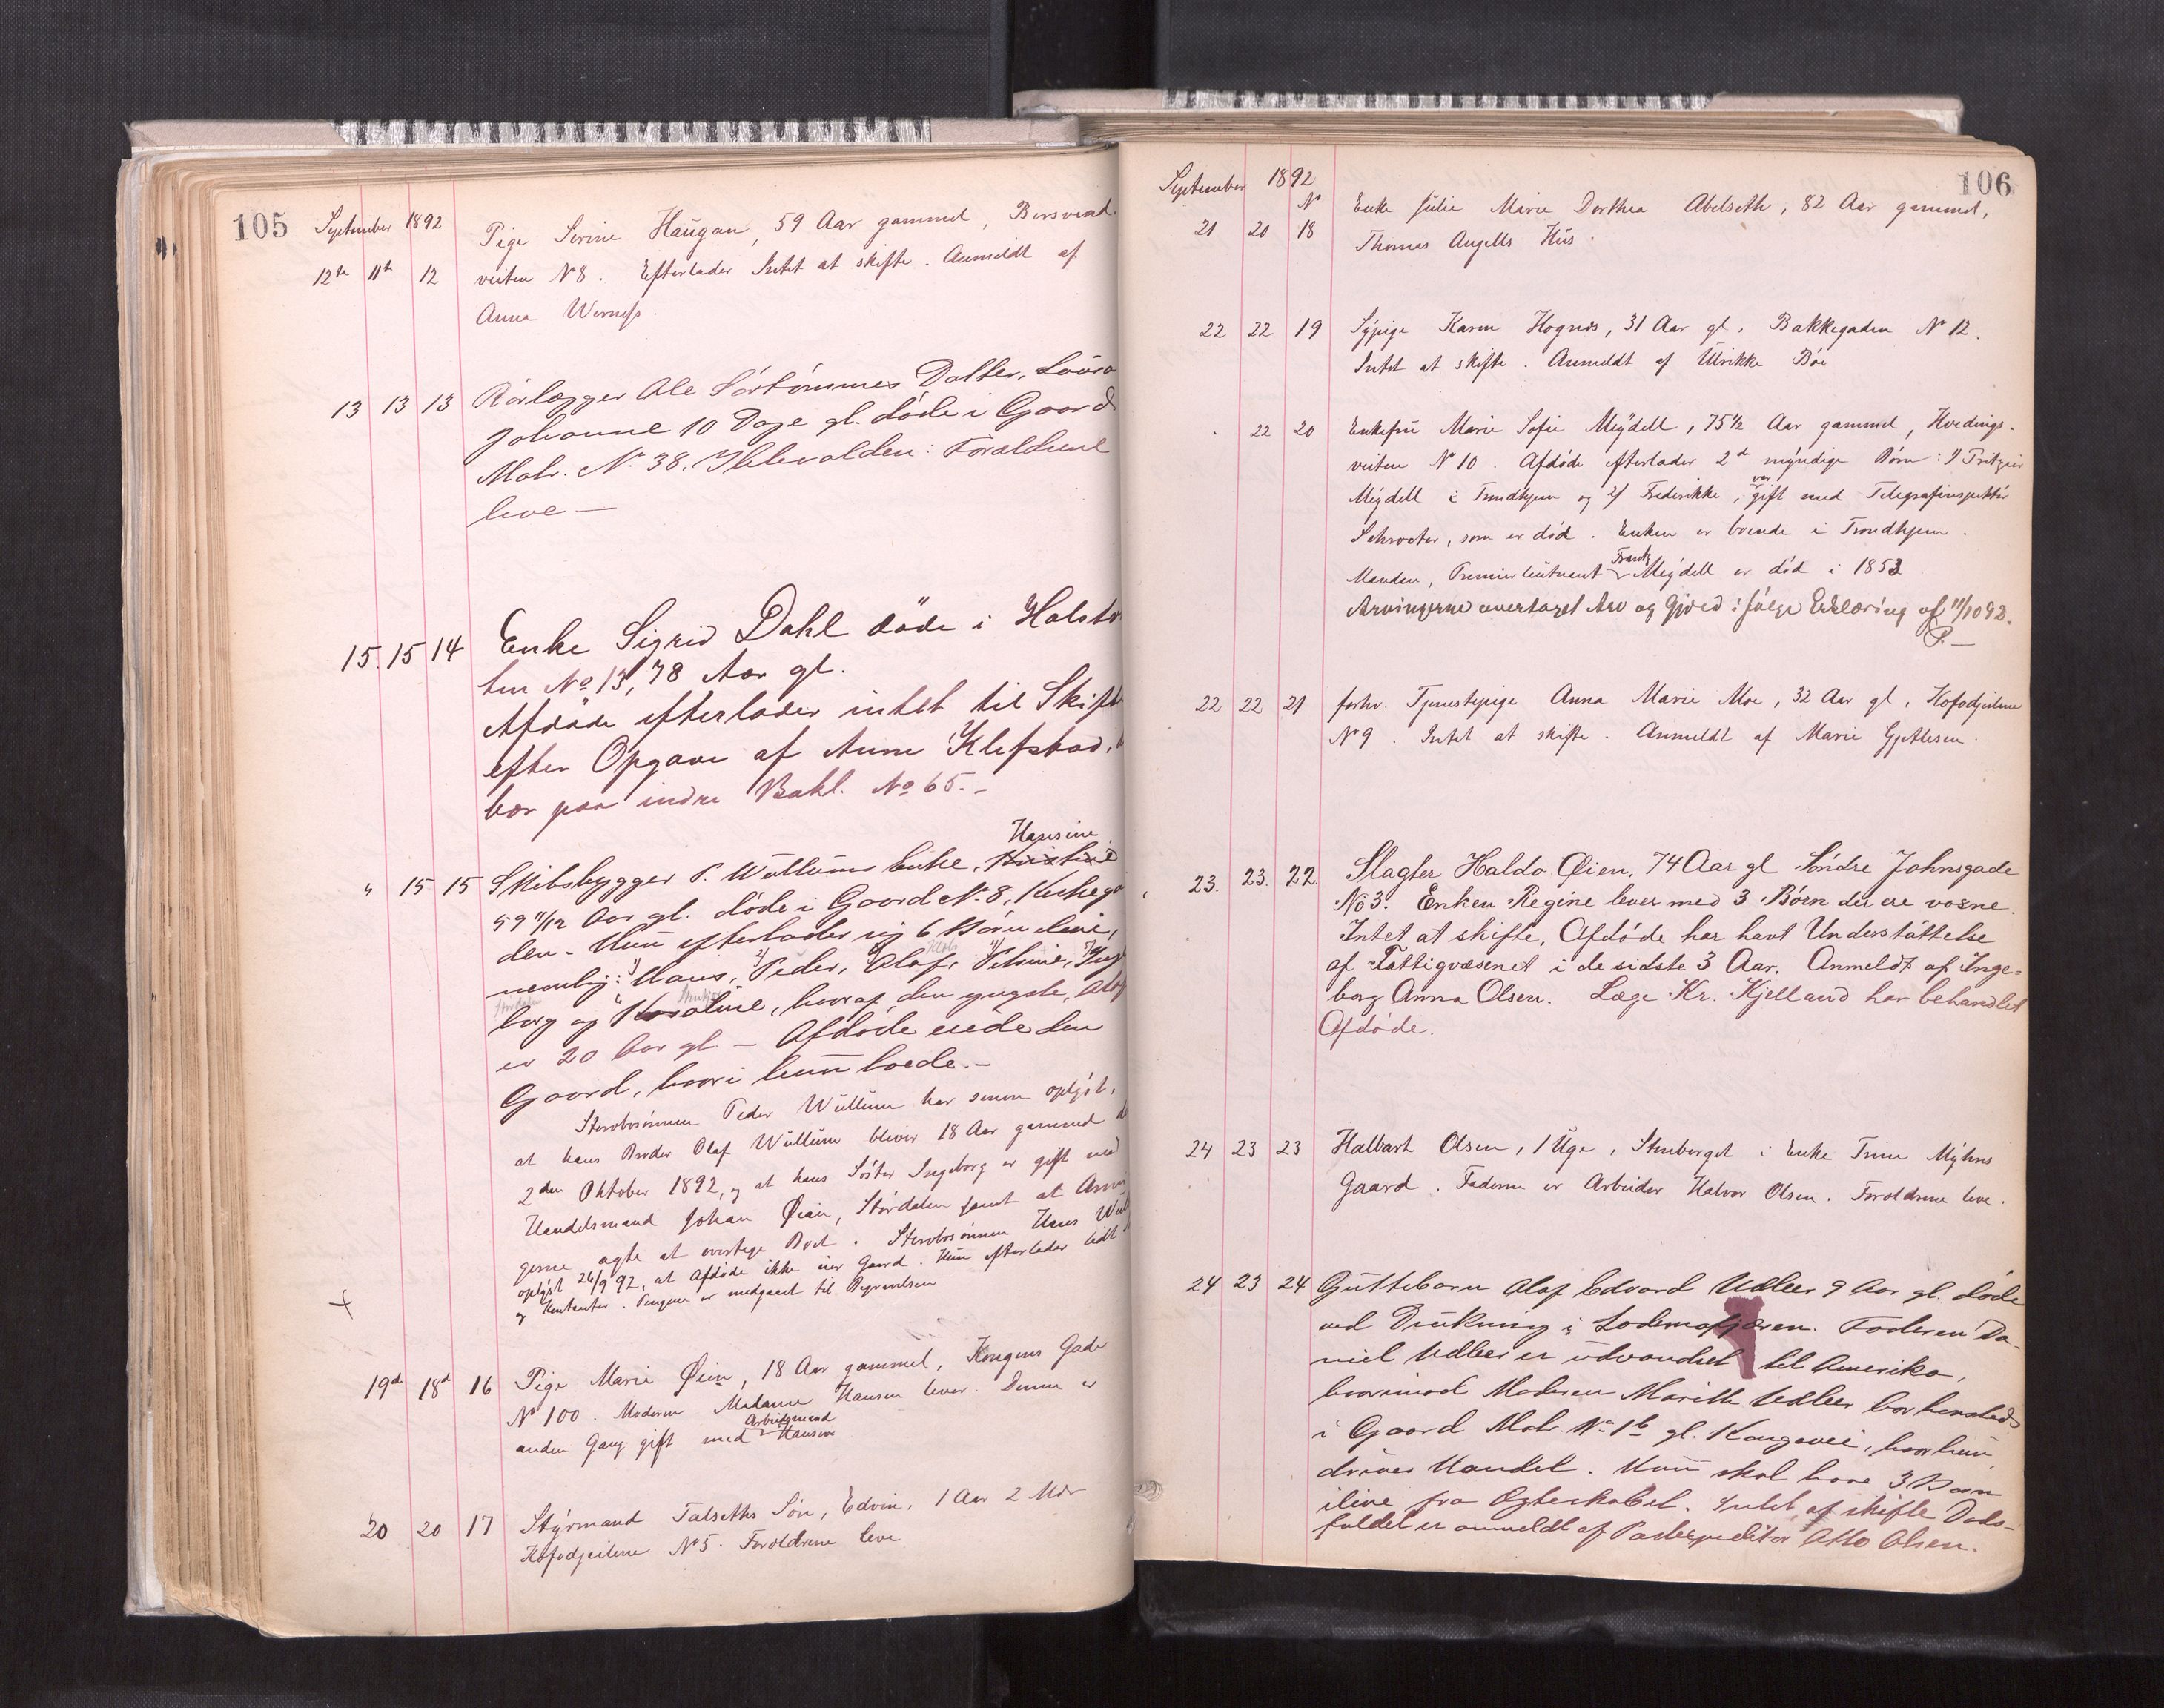 105 September 1892
Pige Serine Haugan, 59 Aar gammel, Borsvend
12te 11te 12 veiten No 8. Efterlader Intet at skifte. Anmeldt af
Anna Werness.
13 13 13 Rørlægger Ole Sørtømmes Datter, Laura
Johanne 10 Dage gl. døde i Gaard
Matr. No 38, Ihlevolden: Forældrene
leve —
15. 15 14 Enke Sigrid Dahl døde i Halstv
ten No 13, 78 Aar gl.
Afdøde efterlader intet til Skift
efter Opgave af Anne Klefstad,
bor paa indre Bakl. No 65. –
Hansine
" 15 15 Skibsbygger P. Wullums Enke,
59 11/12 Aar gl. døde i Gaard No. 8, Kirkega
den. – Hun efterlader sig 6 Børn ilive,
nemlig: 1) Hans, 2) Peder, 3) Olaf, 4) Petrine, 5) Inge
borg og Karoline, hvoraf den yngste, Olaf
er 20 Aar gl. – Afdøde eiede den
Gaard, hvori hun boede. –
Stervbosønnen Peder Wullum har senere oplyst,
at hans Broder Olaf Wullum bliver 18 Aar gammel d
2den Oktober 1892, og at hans Søster Ingeborg er gift med
Handelsmand Johan Øian, Størdalen samt at Arvin
gerne agte at overtage Boet. Stervbosønnen Hans Wul
oplyst 26/9 92, at Afdøde ikke eier Gaard. Hun efterlader lidt
og Kontanter. Pengene er medgaaet til Begravelsen
+
19d 18d 16 Pige Marie Øien, 18 Aar gammel, Kongens Gade
No 100. Moderen Madame Hansen lever. Denne er
anden Gang gift med Arbeidsmand Hansen
20 20 17 Styrmand Talseths Søn, Edvin, 1 Aar 2 Mdr
Kofodgeilene No 5. Forældrene leve
September 1892 106
No Enke Julie Marie Dorthea Abelseth, 82 Aar gammel,
21 20 18 Thomas Angells Hus.
22 22 19 Sypige Karen Hognes, 31 Aar gl. Bakkegaden No 12.
Intet at skifte. Anmeldt af Ulrikke Bøe
. 22 20 Enkefru Marie Sofie Meydell, 75½ Aar gammel, Hvedings-
veiten No 10. Afdøde efterlader 2de myndige Børn: 1)
Meydell i Trondhjem og 2) Frederikke, var gift med Telegrafinspektør
Schroeter, som er død. Enken er boende i Trondhjem.
Manden, Premierløitnant Frantz Meydell er død i 1853
Arvingerne overtaget Arv og Gjæld ifølge Erklæring af 11/10 92.
P. —
22 22 21 forhv. Tjenestepige Anna Marie Moe, 32 Aar gl, Kofodgeilene
No 9. Intet at skifte. Anmeldt af Marie Gjettesen.
23. 23. 22. Slagter Haldo Øien, 74 Aar gl Søndre Johnsgade
No 3. Enken Regine lever med 3 Børn der ere voxne.
Intet at skifte, Afdøde har havt Understøttelse
af Fattigvæsenet i de sidste 3 Aar. Anmeldt af Inge=
borg Anna Olsen. Læge Kr. Kjelland har behandlet
Afdøde.
24 23 23 Halbart Olsen, 1 Uge, Stenberget i Enke Trine Myhres
Gaard. Faderen er Arbeider Halvor Olsen. Forældrene leve.
24 23 24 Guttebarn Olaf Edvard Udleer 9 Aar gl. døde
ved Drukning i Lademofjæren. Faderen Da-
niel Udleer er udvandret til Amerika,
hvorimod Moderen Marith Udleer bor hersteds
i Gaard Matr. No 1b gl. Kongevei, hvor hun
driver Handel. Hun skal have 3 Børn
ilive fra Ægteskabet. Intet at skifte Døds-
faldet er anmeldt af Postexpeditør Otto Olsen.